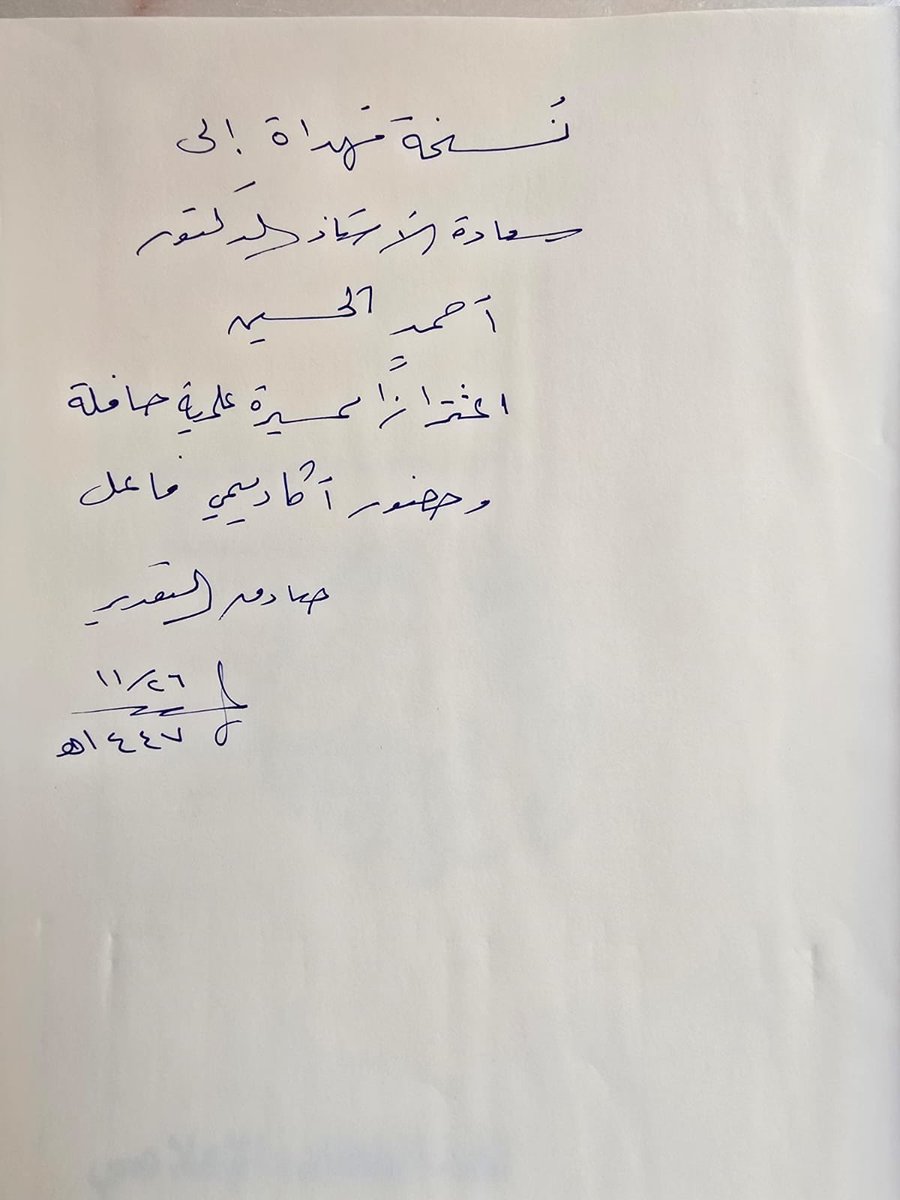 نُسخة مُهداة إلى
سعادة الأستاذ الدكتور
أحمد الحسين
اعتزازًا بمسيرة علمية حافلة
وحضور أكاديمي فاعل
صادق التقدير
١١/٢٦
١٤٤٧هـ